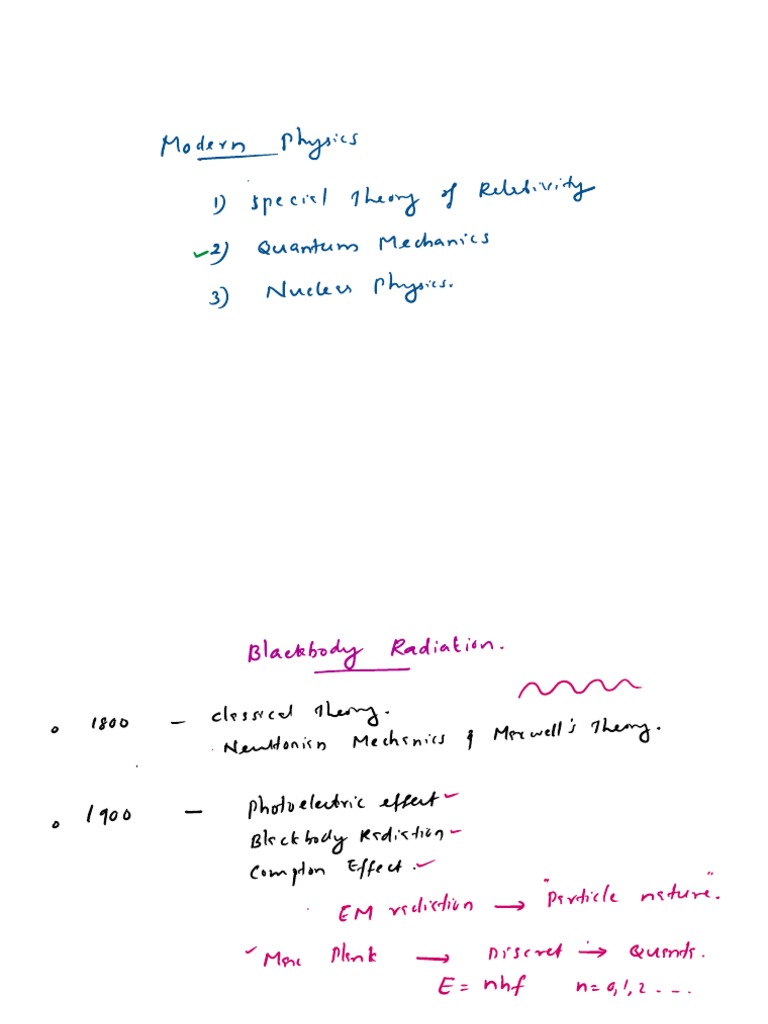 Modern Physics
1) Special Theory of Reletivity
✓2) Quantum Mechanics
3) Nuclear Physics.
Blackbody Radiation.
o 1800 – Classical Theory.
. Newtonian Mechanics & Maxwell's Theory.
o 1900 – Photoelectric effect ✓
Blackbody Radiation ✓
Compton Effect. ✓
. EM radiation → "Particle nature".
✓ Max Plank → Discret → Quanta.
E = nhf n = 0, 1, 2 - - -.